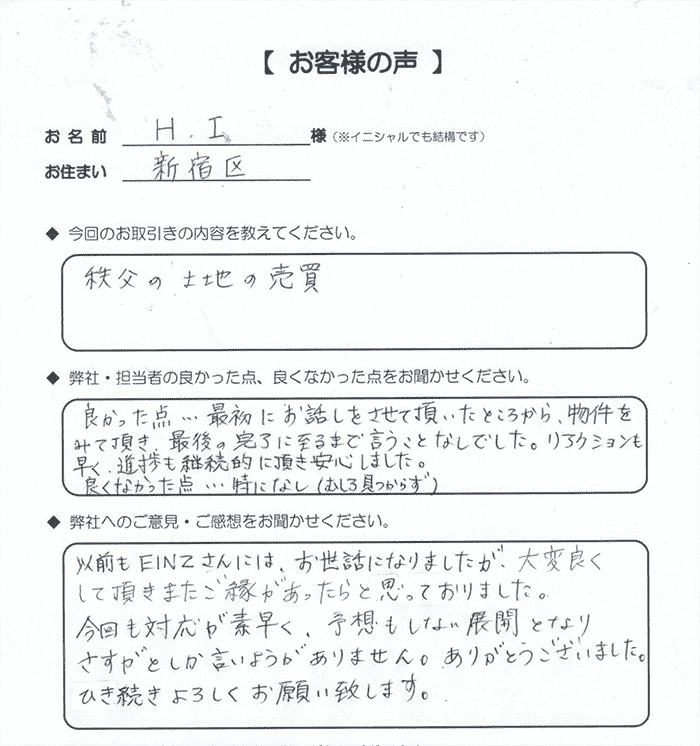 【 お客様の声 】
お名前 H.I 様（※イニシャルでも結構です）
お住まい 新宿区
◆ 今回のお取引きの内容を教えてください。
秩父の土地の売買
◆ 弊社・担当者の良かった点、良くなかった点をお聞かせください。
良かった点…最初にお話しをさせて頂いたところから、物件を
みて頂き、最後の完了に至るまで言うことなしでした。リアクションも
早く、進捗も継続的に頂き安心しました。
良くなかった点…特になし(むしろ見つからず)
◆ 弊社へのご意見・ご感想をお聞かせください。
以前もEINZさんには、お世話になりましたが、大変良く
して頂きまたご縁があったらと思っておりました。
今回も対応が素早く、予想もしない展開となり
さすがとしか言いようがありません。ありがとうございました。
ひき続きよろしくお願い致します。